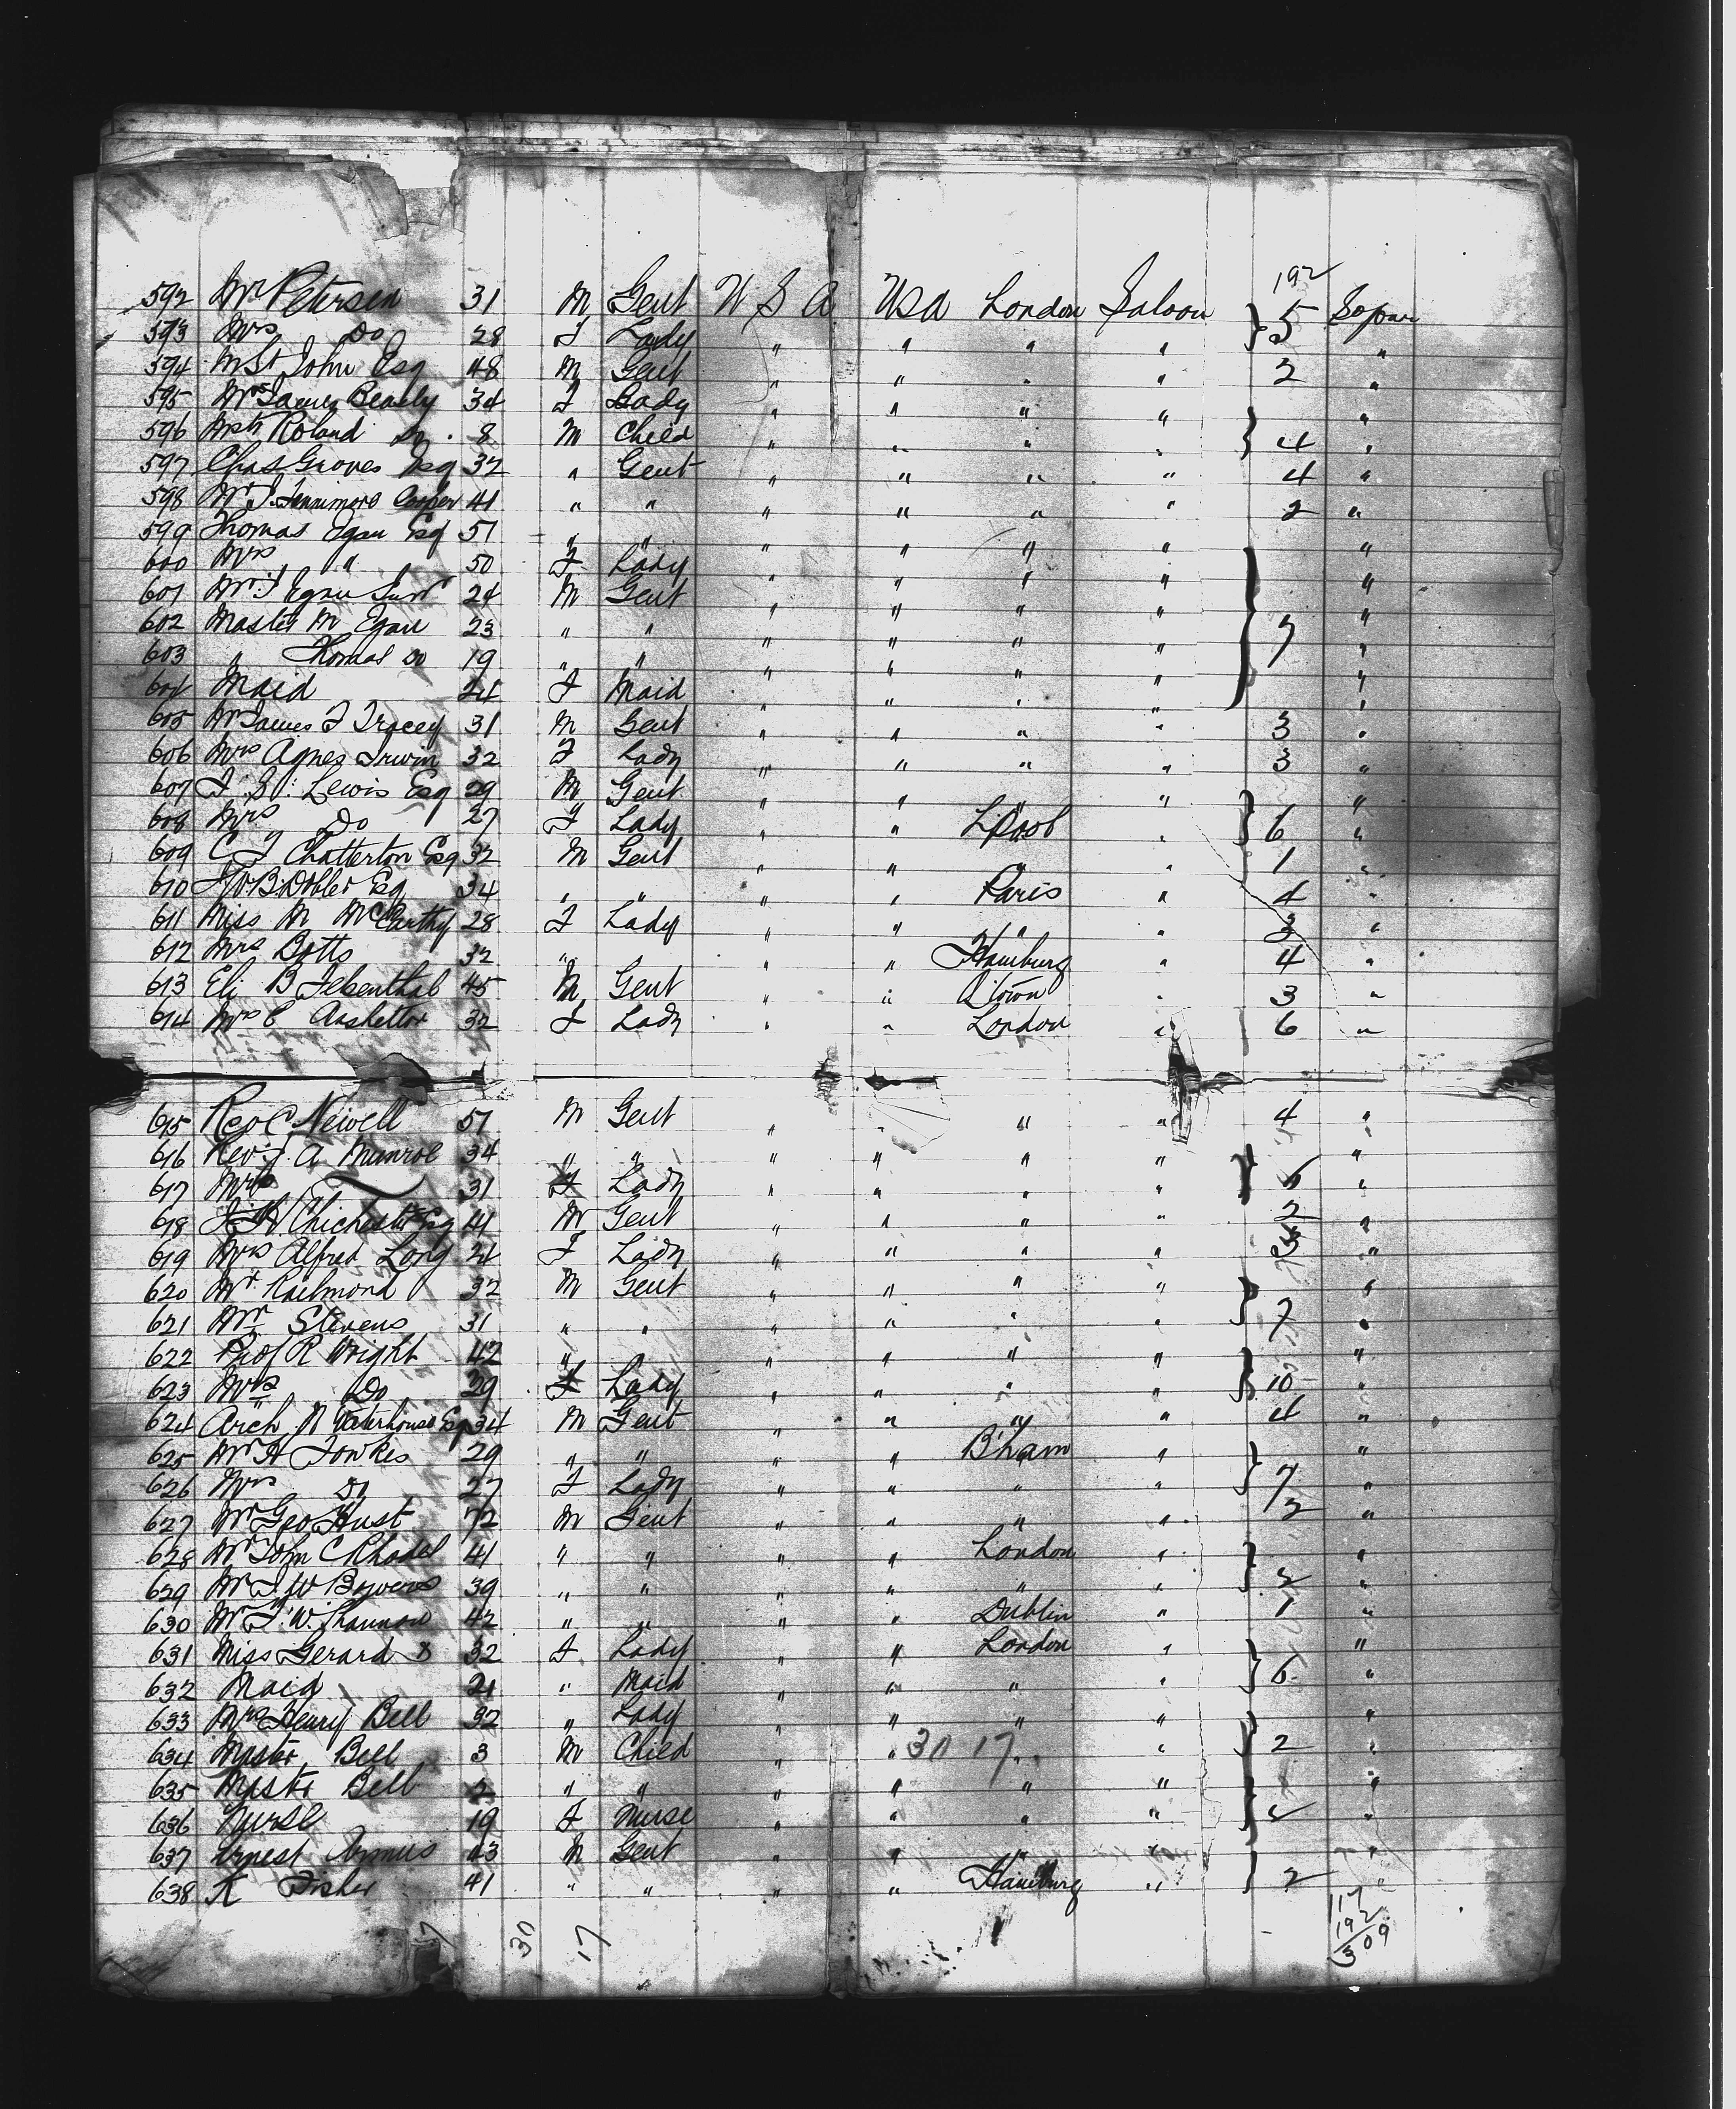 192
592 Mr Petersen 31 M Gent U S A USA London Saloon 5 Sopar
593 Mrs Do 28 F Lady " " " " "
594 M St John Esq 48 M Gent " " " " 2 "
595 Mrs James Bealy 34 F Lady " " " " "
596 Mstr Roland Do 8 M Child " " " " 4 "
597 Chas Groves Esq 32 " Gent " " " " 4 "
598 Mr J. Fennimore Cooper 41 " " " " " " 2 "
599 Thomas Egan Esq 51 " " " " " " "
600 Mrs " 50 F Lady " " " " "
601 Mr J Egan Junr 24 M Gent " " " " "
602 Master M Egan 23 " " " " " " 7 "
603 " Thomas Do 19 " " " " " " "
604 Maid 24 F Maid " " " " "
605 Mr James F Tracey 31 M Gent " " " " 3 "
606 Mrs Agnes Irwin 32 F Lady " " " " 3 "
607 J. S. Lewis Esq 29 M Gent " " " " "
608 Mrs Do 27 F Lady " " LPool " 6 "
609 C J Chatterton Esq 32 M Gent " " " " 1 "
610 Dobler Esq 34 " " " " Paris " 4 "
611 Miss M McCarthy 28 F Lady " " " " 3 "
612 Mrs Botts 32 " " " " Hamburg " 4 "
613 Eli B Felsenthal 45 M Gent " " Qtown " 3 "
614 Mrs C 32 F Lady " " London " 6 "
615 Rev C Newell 51 M Gent " " " " 4 "
616 Rev J. A Munroe 34 " " " " " " "
617 Mrs 31 F Lady " " " " 6 "
618 J H Chichester Esq 41 M Gent " " " " 2 "
619 Mrs Alfred Long 24 F Lady " " " " 3 "
620 Mr Railmond 32 M Gent " " " " "
621 Mr Stevens 31 " " " " " " 7 "
622 Prof R Wright 42 " " " " " "
623 Mrs Do 29 F Lady " " " " 10 "
624 Arch N Waterhouse Esq 34 M Gent " " " " 4 "
625 Mr H Fowkes 29 " " " " B'ham " "
626 Mrs Do 27 F Lady " " " " 7 "
627 Mr Geo Hust 72 M Gent " " " " 3 "
628 Mr John C Rhodal 41 " " " " London " "
629 Mr J W Bowers 39 " " " " " " 2 "
630 Mr J. W. Shannon 42 " " " " Dublin " 1 "
631 Miss Gerard 32 F Lady " " London " "
632 Maid 21 " Maid " " " " 6 "
633 Mrs Henry Bell 32 " Lady " " " " "
634 Mstr Bell 3 M Child " " 30 17 " " 2 "
635 Mstr Bell 2 " " " " " " "
636 Nurse 19 F Nurse " " " " 2 "
637 Ernest 43 M Gent " " " " "
638 K Fisher 41 " " " " Hamburg " 2 "
47 30 17
117
192
309